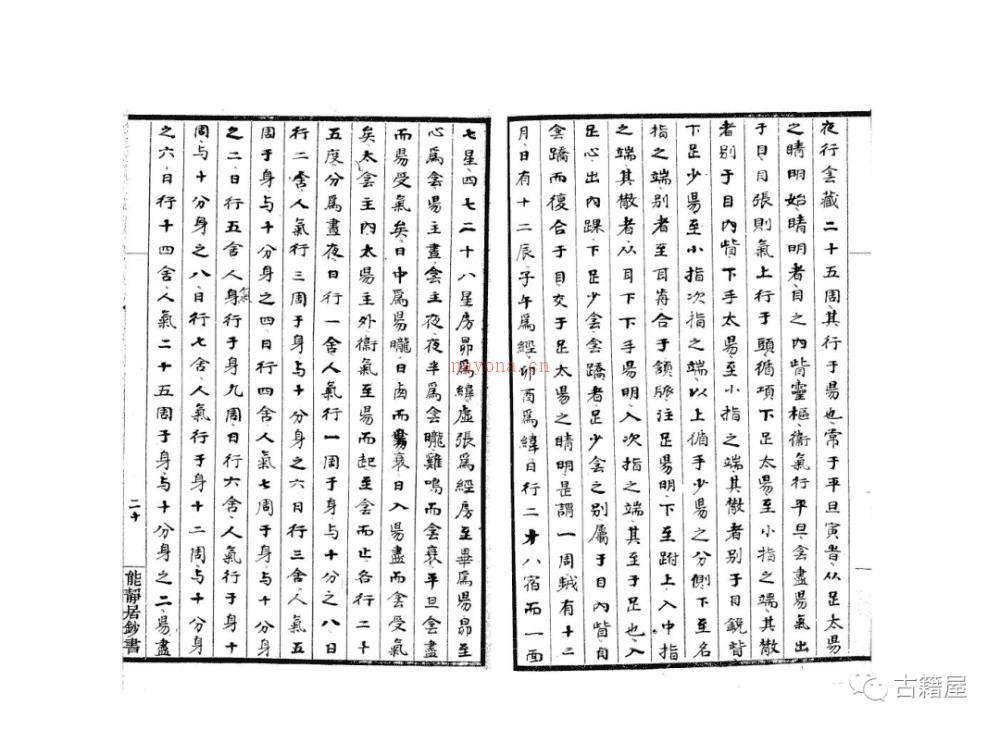 夜行侌藏二十五周其行于昜也常于平旦寅昔从足太昜
之睛明始睛明者目之內眥靈樞衞氣行平旦侌盡昜氣出
于目目張則氣上行于頭循項下足太昜至小指之端其散
者别于目內眥下手太昜至小指之端其散者别于目銳眥
下足少昜至小指次指之端以上循手少昜之分側下至名
指之端别者至耳前合于頷脈注足昜明下至跗上入中指
之端其散者从耳下下手昜明入次指之端其至于足也入
足心出內踝下足少侌侌蹻者足少侌之别屬于目內眥自
侌蹻而復合于目交于足太昜之睛明是謂一周歲有十二
月日有十二辰子午爲經卯酉爲緯日行二十八宿而一面
七星四七二十八星房昴爲緯虛張爲經房至畢爲昜昴至
心爲侌昜主晝侌主夜夜半爲侌隴雞鳴而侌衰平旦侌盡
而昜受氣矣日中爲昜隴日西而昜衰日入昜盡而侌受氣
矣太侌主內太昜主外衞氣至昜而起至侌而止各行二十
五度分爲晝夜日行一舍人氣行一周于身与十分之八日
行二舍人氣行三周于身与十分身之六日行三舍人氣五
周于身与十分身之四日行四舍人氣七周于身与十分身
之二日行五舍人氣身行于身九周日行六舍人氣行于身十
周与十分身之八日行七舍人氣行于身十二周与十分身
之六日行十四舍人氣二十五周于身与十分身之二昜盡
二十
能靜居鈔書
nayona.cn
古籍屋